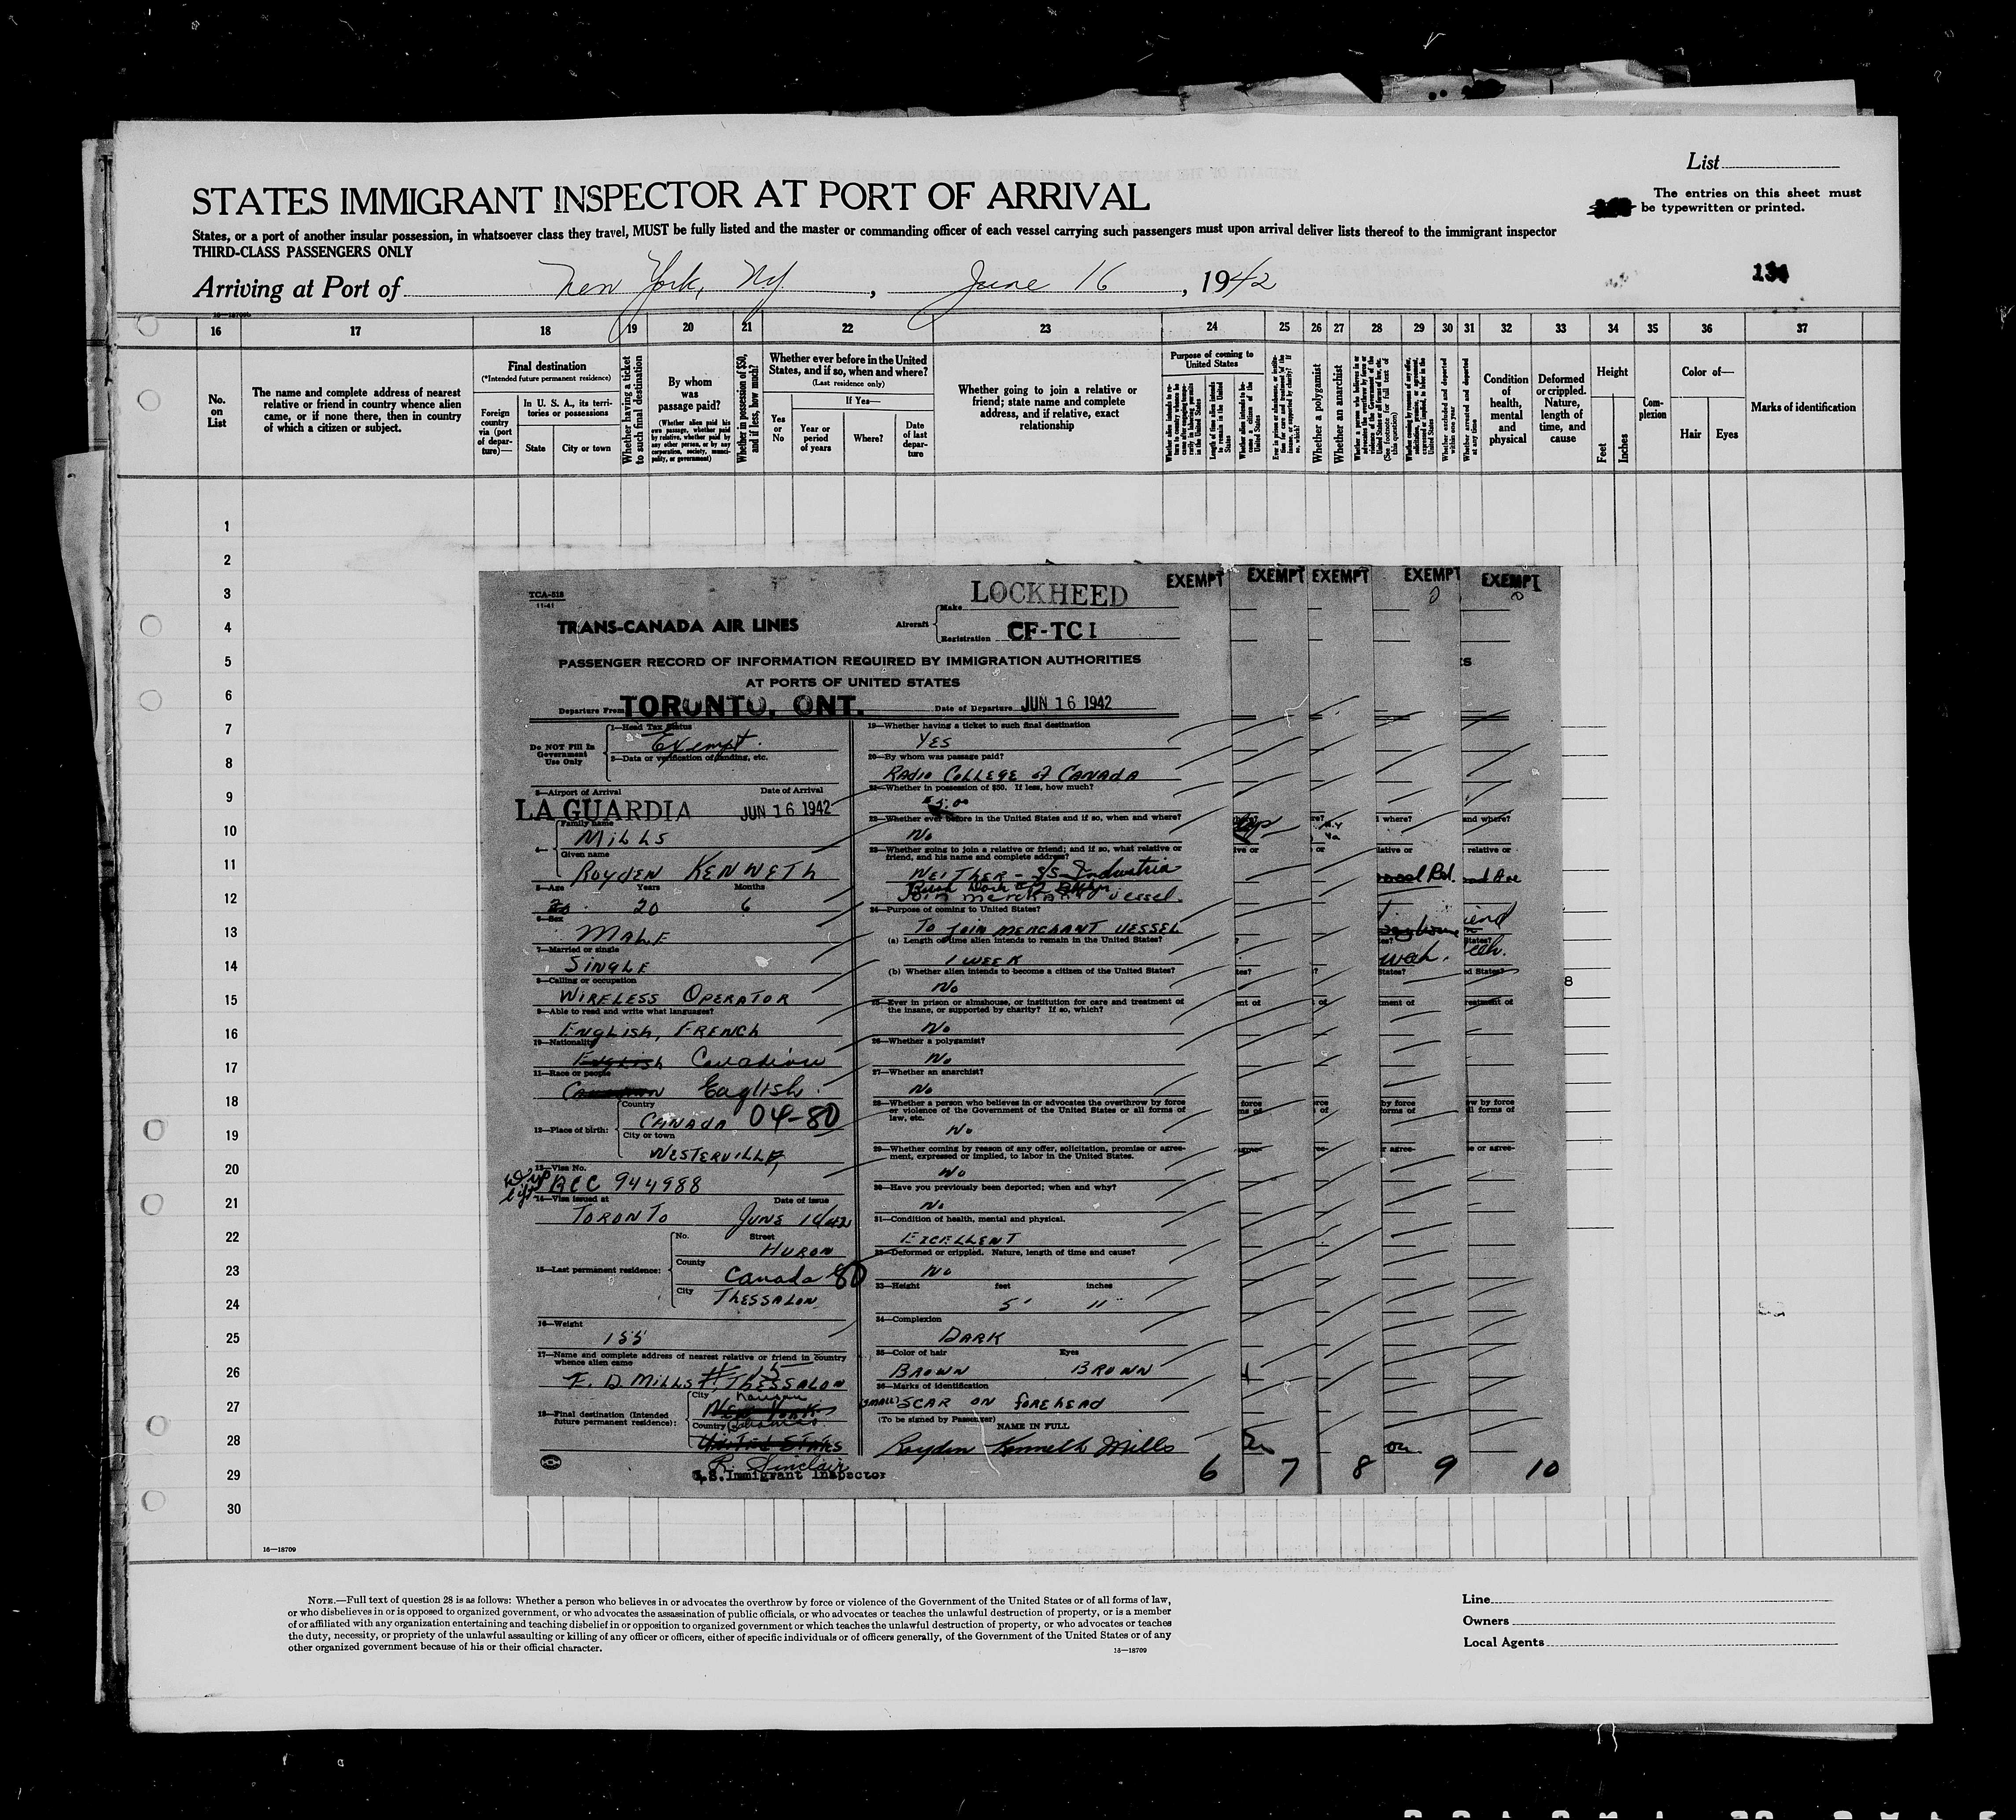 List
STATES IMMIGRANT INSPECTOR AT PORT OF ARRIVAL
The entries on this sheet must
be typewritten or printed.
States, or a port of another insular possession, in whatsoever class they travel, MUST be fully listed and the master or commanding officer of each vessel carrying such passengers must upon arrival deliver lists thereof to the immigrant inspector
THIRD-CLASS PASSENGERS ONLY
Arriving at Port of New York, NY, June 16, 1942
16 17 18 19 20 21 22 23 24 25 26 27 28 29 30 31 32 33 34 35 36 37
No. on List
The name and complete address of nearest relative or friend in country whence alien came, or if none there, then in country of which a citizen or subject.
Final destination
(*Intended future permanent residence)
Foreign country via (port of departure)—
In U. S. A., its territories or possessions
State
City or town
Whether having a ticket to such final destination
By whom was passage paid?
(Whether alien paid his own passage, whether paid by relative, whether paid by any other person, or by any corporation, society, municipality, or government)
Whether in possession of $50, and if less, how much?
Whether ever before in the United States, and if so, when and where?
(Last residence only)
If Yes—
Yes or No
Year or period of years
Where?
Date of last departure
Whether going to join a relative or friend; state name and complete address, and if relative, exact relationship
Purpose of coming to United States
Length of time alien intends to remain in the United States
Whether a polygamist
Whether an anarchist
(See footnote for full text of this question)
Whether excluded and deported within one year
Whether arrested and deported at any time
Condition of health, mental and physical
Deformed or crippled. Nature, length of time, and cause
Height
Feet
Inches
Complexion
Color of—
Hair
Eyes
Marks of identification
1
2
3
4
5
6
7
8
9
10
11
12
13
14
15
16
17
18
19
20
21
22
23
24
25
26
27
28
29
30
TCA-518
11-41
LOCKHEED
EXEMPT EXEMPT EXEMPT EXEMPT EXEMPT
TRANS-CANADA AIR LINES
Aircraft
Make
Registration CF-TCI
PASSENGER RECORD OF INFORMATION REQUIRED BY IMMIGRATION AUTHORITIES
AT PORTS OF UNITED STATES
Departure From TORONTO, ONT. Date of Departure JUN 16 1942
Do NOT Fill In
Government
Use Only
1—Head Tax Status
Exempt.
2—Data or verification of landing, etc.
3—Airport of Arrival Date of Arrival
LA GUARDIA JUN 16 1942
4—
Family name
MILLS
Given name
ROYDEN KENNETH
5—Age Years Months
20 6
6—Sex
MALE
7—Married or single
SINGLE
8—Calling or occupation
WIRELESS OPERATOR
9—Able to read and write what languages?
ENGLISH, FRENCH
10—Nationality
English Canadian
11—Race or people
Canadian English
12—Place of birth:
Country
CANADA 04-80
City or town
WESTERVILLE
13—Visa No.
ACC 944988
14—Visa issued at Date of issue
TORONTO JUNE
15—Last permanent residence:
No. Street
HURON
County
Canada 80
City
THESSALON
16—Weight
155
17—Name and complete address of nearest relative or friend in country
whence alien came
F. D. MILLS THESSALON
18—Final destination (Intended
future permanent residence):
City
NEW YORK
Country
UNITED STATES
R. Sinclair
U.S. Immigrant Inspector
19—Whether having a ticket to such final destination
YES
20—By whom was passage paid?
RADIO COLLEGE of CANADA
21—Whether in possession of $50. If less, how much?
22—Whether ever before in the United States and if so, when and where?
No
23—Whether going to join a relative or friend; and if so, what relative or
friend, and his name and complete address?
NEITHER - S/S Industria
Join merchant vessel.
24—Purpose of coming to United States?
TO JOIN MERCHANT VESSEL
(a) Length of time alien intends to remain in the United States?
1 WEEK
(b) Whether alien intends to become a citizen of the United States?
No
25—Ever in prison or almshouse, or institution for care and treatment of
the insane, or supported by charity? If so, which?
No
26—Whether a polygamist?
No
27—Whether an anarchist?
No
28—Whether a person who believes in or advocates the overthrow by force
or violence of the Government of the United States or all forms of
law, etc.
No
29—Whether coming by reason of any offer, solicitation, promise or agree-
ment, expressed or implied, to labor in the United States.
No
30—Have you previously been deported; when and why?
No
31—Condition of health, mental and physical.
EXCELLENT
32—Deformed or crippled. Nature, length of time and cause?
No
33—Height feet inches
5' 11"
34—Complexion
DARK
35—Color of hair Eyes
BROWN BROWN
36—Marks of identification
(SMALL) SCAR ON foREHEAD
(To be signed by Passenger)
NAME IN FULL
Royden Kenneth Mills
6 7 8 9 10
16—18709
NOTE.—Full text of question 28 is as follows: Whether a person who believes in or advocates the overthrow by force or violence of the Government of the United States or of all forms of law,
or who disbelieves in or is opposed to organized government, or who advocates the assassination of public officials, or who advocates or teaches the unlawful destruction of property, or is a member
of or affiliated with any organization entertaining and teaching disbelief in or opposition to organized government or which teaches the unlawful destruction of property, or who advocates or teaches
the duty, necessity, or propriety of the unlawful assaulting or killing of any officer or officers, either of specific individuals or of officers generally, of the Government of the United States or of any
other organized government because of his or their official character.
16—18709
Line
Owners
Local Agents